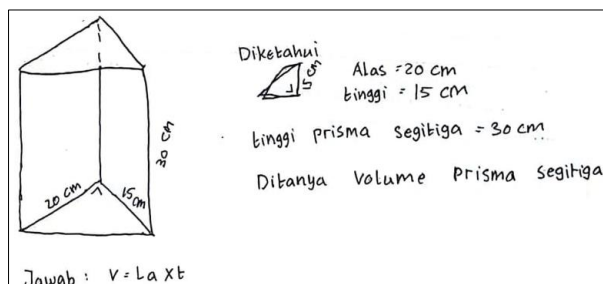 30 cm
20 cm
15 cm
Diketahui
15 cm
Alas = 20 cm
tinggi = 15 cm
tinggi prisma segitiga = 30 cm
Ditanya Volume Prisma segitiga
Jawab : V = La x t